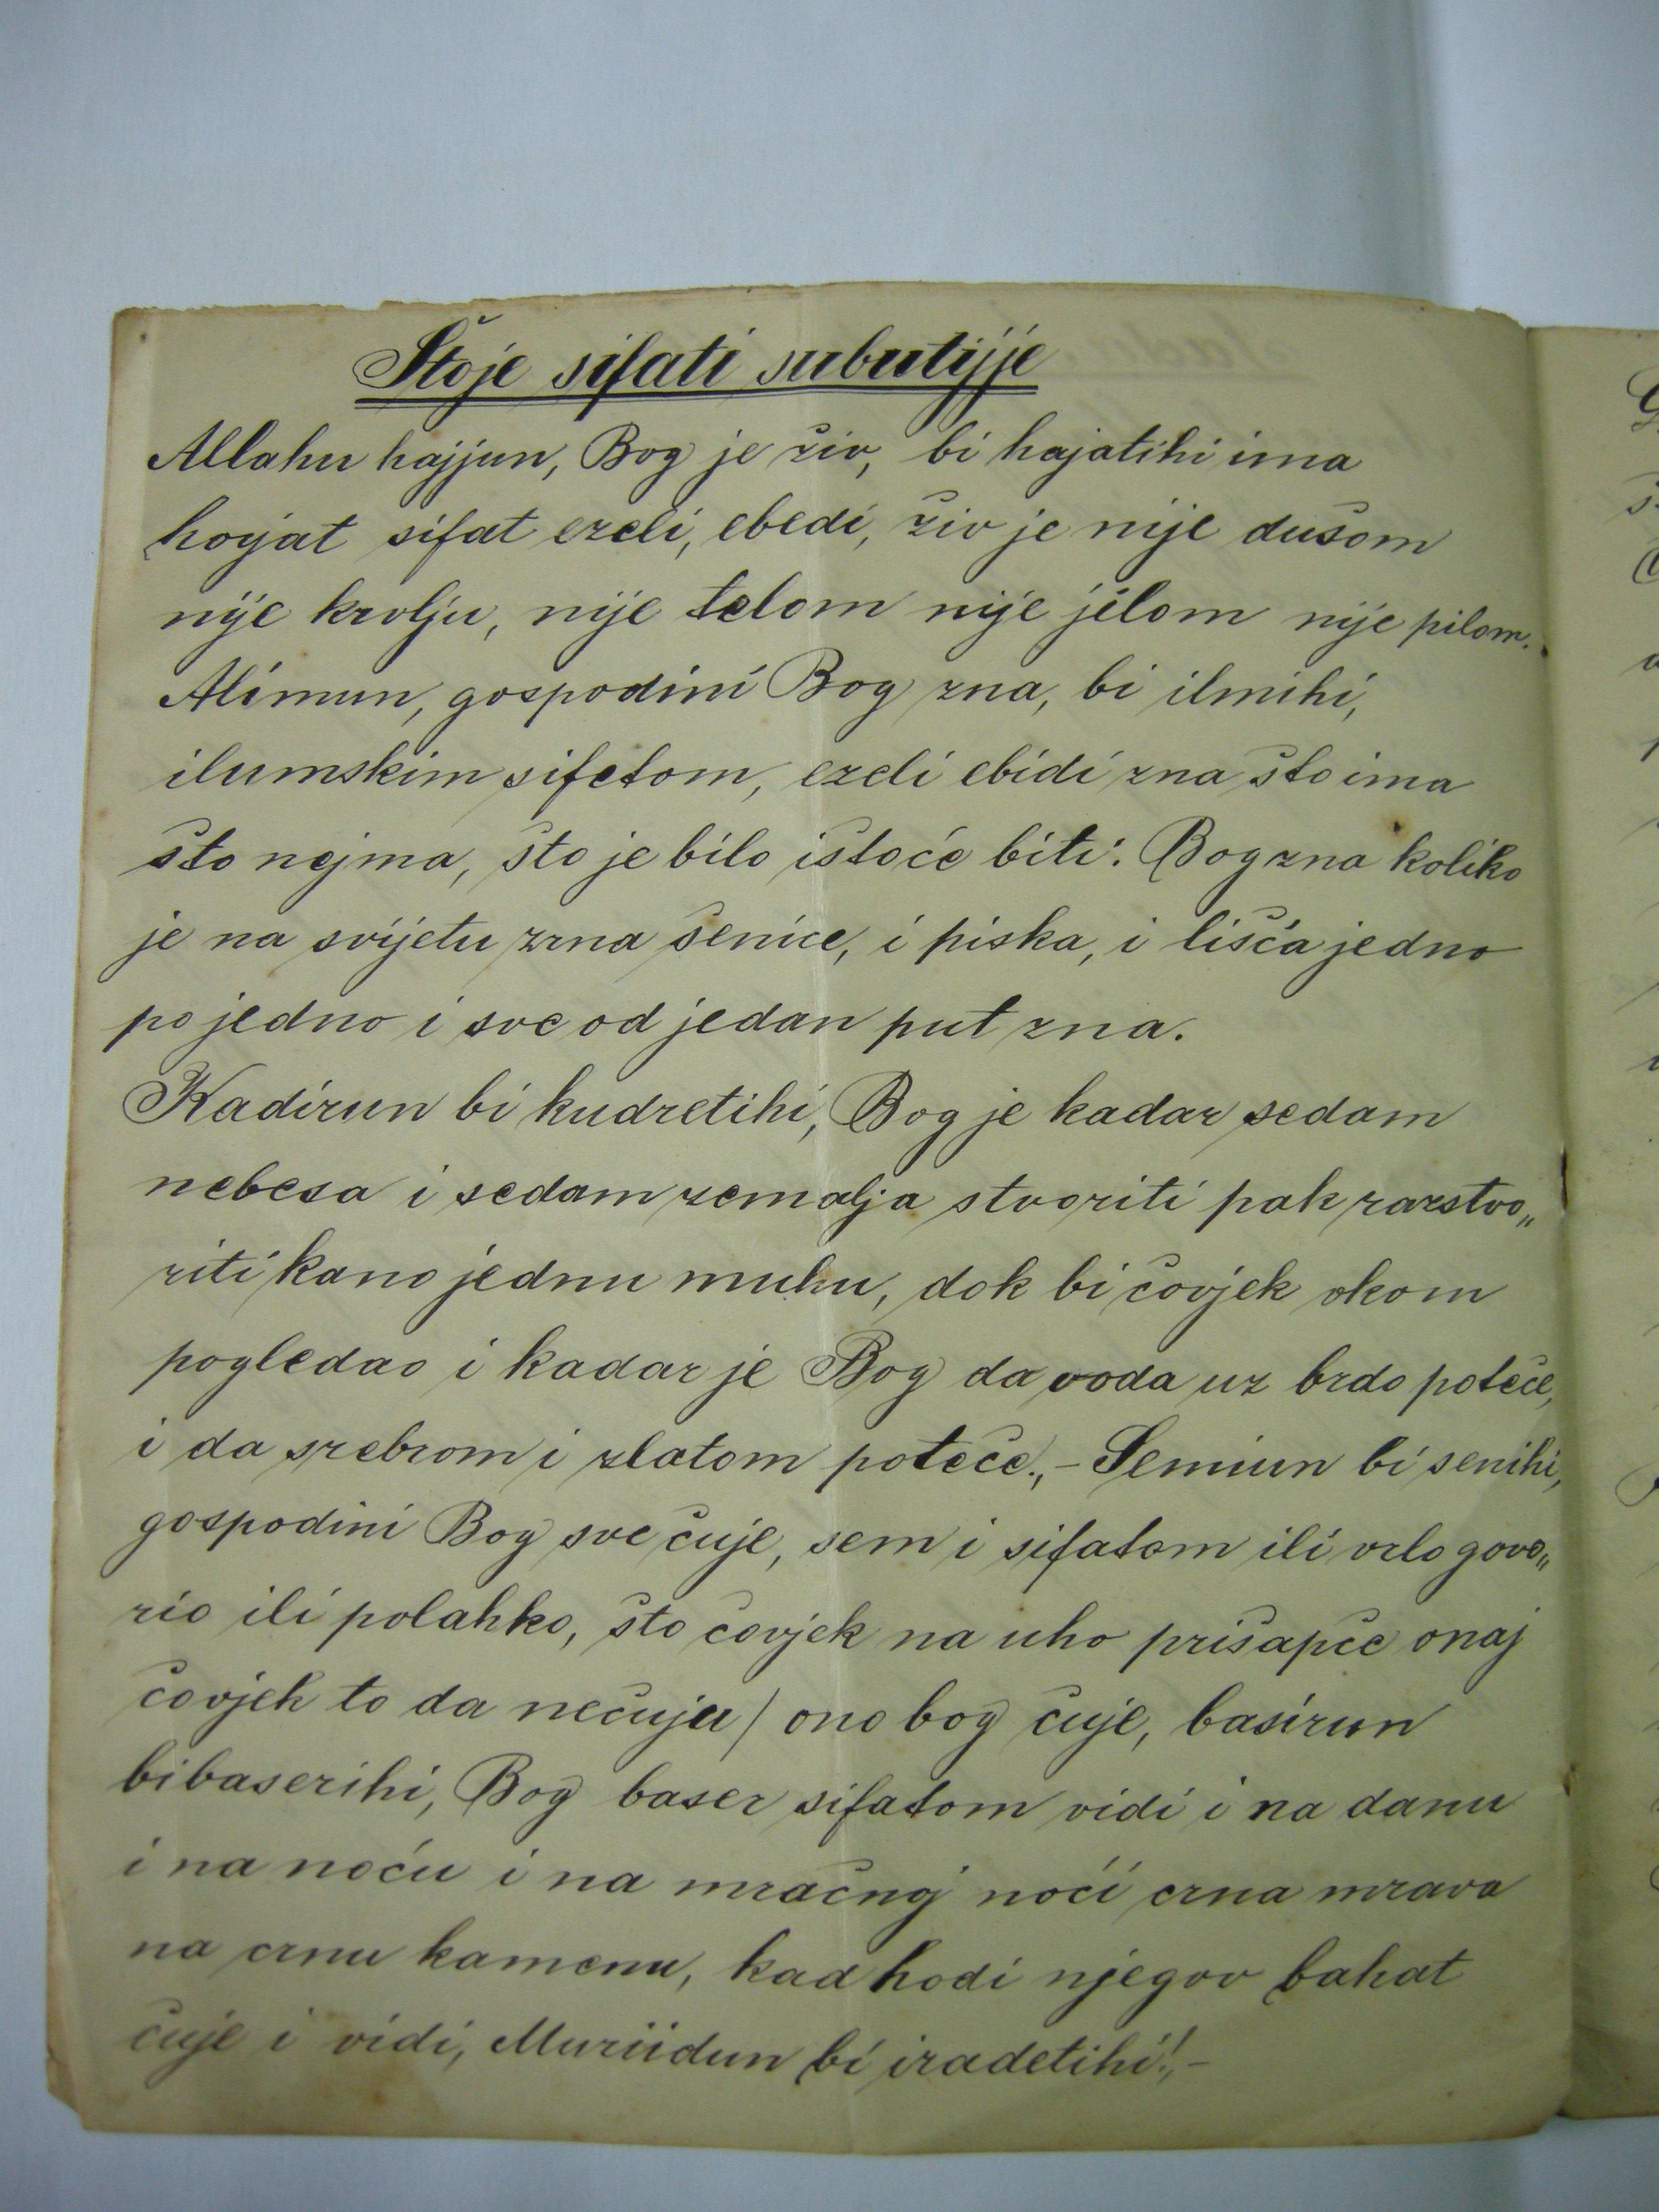 Štoje sifati subutijje
Allahu hajjun, Bog je živ, bi hajatihi ima
hojat sifat ezeli, ebedi, živ je nije dušom
nije krvlju, nije telom nije jelom nije pilom.
Alimun, gospodini Bog zna, bi ilmihi,
ilumskim sifetom, ezeli ebidi zna što ima
što nejma, što je bilo i štoće biti. Bog zna koliko
je na svijetu zrna šenice, i piska, i lišća jedno
po jedno i sve od jedan put zna.
Kadirun bi kudretihi, Bog je kadar sedam
nebesa i sedam zemalja stvoriti pak razstvo„
riti kano jednu muhu, dok bi čovjek okom
pogledao i kadar je Bog da voda uz brdo poteče,
i da srebrom i zlatom poteče., – Semiun bi senihi,
gospodini Bog sve čuje, sem i sifatom ili vrlo govo„
rio ili polahko, što čovjek na uho prišapče onaj
čovjek to da nečuju / ono bog čuje, basirun
bibaserihi, Bog baser sifatom vidi i na danu
i na noću i na mračnoj noći crna mrava
na crnu kamenu, kad hodi njegov bahat
čuje i vidi, Muriidun bi iradetihi!, –